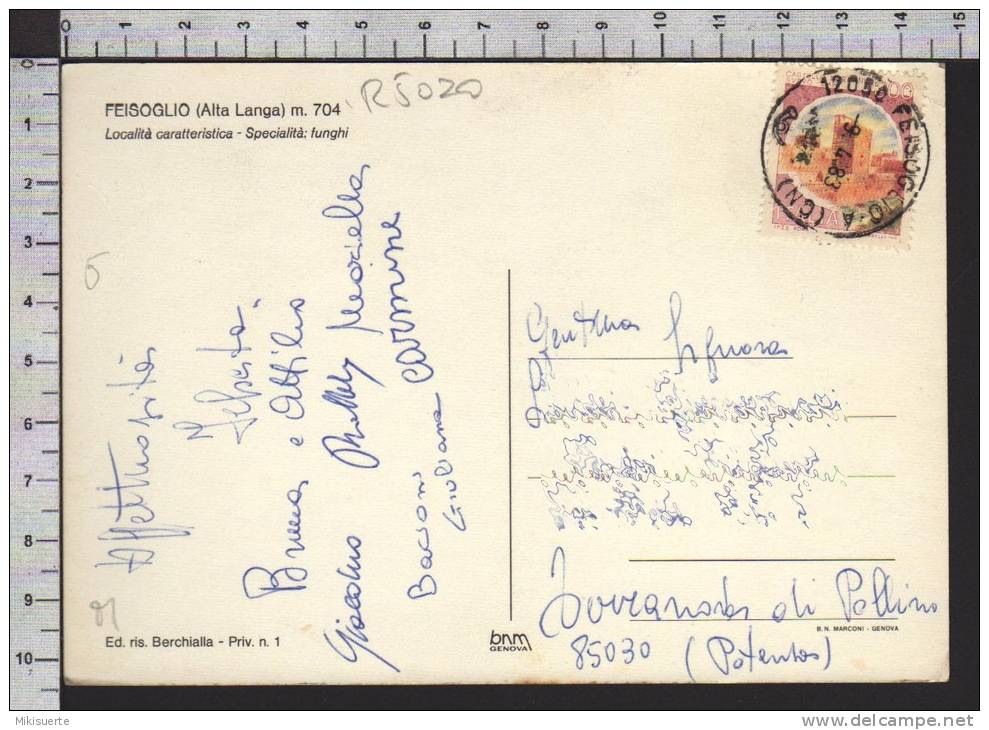 FEISOGLIO (Alta Langa) m. 704
Località caratteristica - Specialità: funghi
R5020
12050 FEISOGLIO-A (CN)
-9.4.83
Affettuosità
Bruna e Attilio
Giacomo Mariella
Bacioni CARMINE
GIULIANA
Gent.ma Signora
Terranova di Pollino
85030 (Potenza)
B.N. MARCONI - GENOVA
bnm
GENOVA
Ed. ris. Berchialla - Priv. n. 1
0 1 2 3 4 5 6 7 8 9 10 11 12 13 14 15
0
1
2
3
4
5
6
7
8
9
10
Mikisuerte
www.delcampe.net